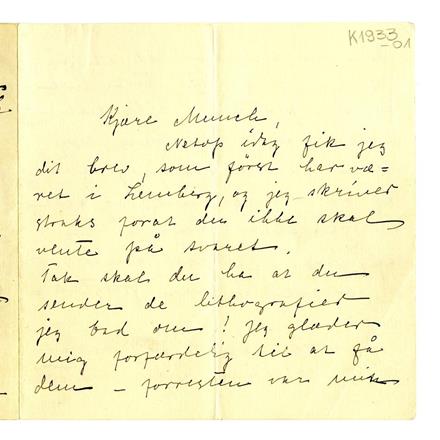 K1933
-01
Kjære Munch,
Netop idag fik jeg
dit brev, som først har væ=
ret i Lemberg, og jeg skriver
straks forat du ikke skal
vente på svaret.
Tak skal du ha at du
sender de lithografier
jeg bad om! Jeg glæder
mig forfærdelig til at få
dem – forresten var min